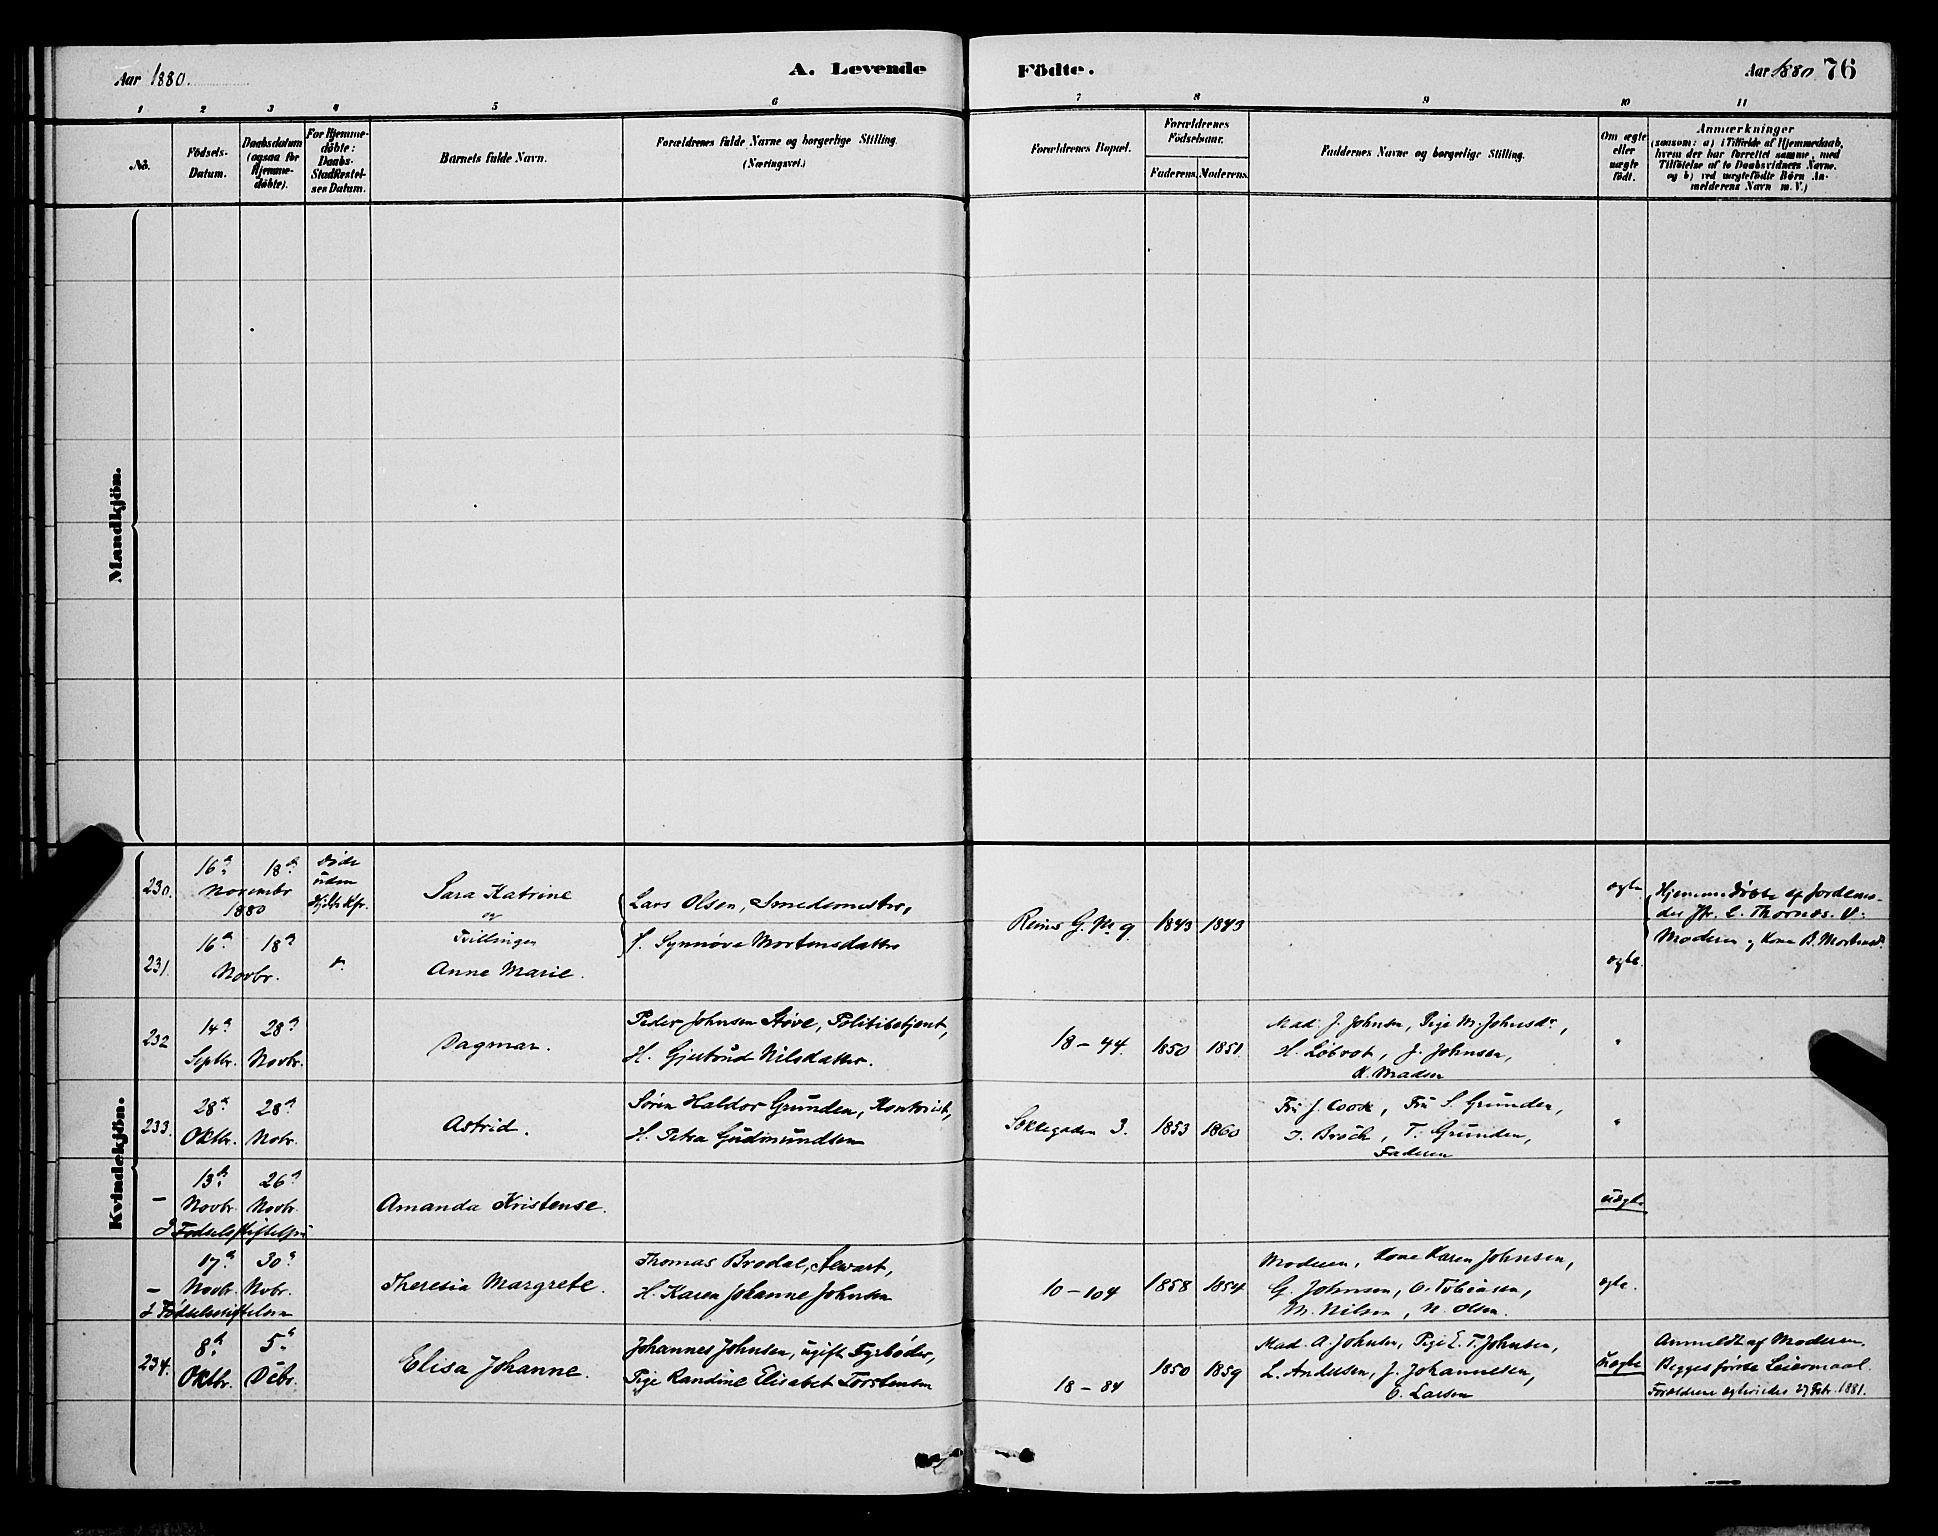 Aar 1880.
A. Levende
Födte.
Aar 1880 76
1 2 3 4 5 6 7 8 9 10 11
No.
Födsels-
Datum.
Daabsdatum
(ogsaa for
Hjemme-
döbte).
For Hjemme-
döbte:
Daabs-
Stadfæstel-
ses Datum.
Barnets fulde Navn.
Forældrenes fulde Navne og borgerlige Stilling.
(Næringsvei.)
Forældrenes Bopæl.
Forældrenes
Födselsaar.
Faderens. Moderens.
Faddernes Navne og borgerlige Stilling.
Om ægte
eller
uægte
födt.
Anmærkninger
(saasom: a) i Tilfælde af Hjemmedaab,
hvem der har forrettet samme, med
Tilföielse af to Daabsvidners Navne.
og b) ved uægtefödte Börn An-
melderens Navn m. V.)
Mandkjön.
Kvindekjön.
230. 16de 18de
Novembr
1880
Døde
uden
Sara Katrine
Lars Olsen, Smedemester,
Reins G. No 9 1843 1843
ægte
Hjemmedøbte af Jordemo-
der Jfr. C. Thornæs. V:
og
Tvillinger
231. 16de 18de
Novbr.
Anne Marie.
H. Synnøve Mortensdatter
ægte.
Moderen og Kone B. Mortensdr
232 14de 28de
Septbr. Novbr.
Dagmar.
Peder Johnsen Støve, Politibetjent,
H. Gjertrud Nilsdatter.
18 – 44. 1850 1851
Mad. J. Johnsen, Pige M. Johnsdr,
H. Løbvot, J. Johnsen,
K. Madsen
"
233. 28de 28de
Oktbr. Nobr.
Astrid.
Søren Haldor Grunden, Kontorist,
H. Petra Gudmundsen
3. 1853 1860
Fru J. Cook, Fru S. Grunden,
J. Broch, T. Grunden,
Faderen
"
– 13de 26de
Novbr. Novbr.
Amanda Kristense.
uægte
– 17de 30de
Novbr. Nvbr.
I Fødselsstiftelsen
Theresia Margrete.
Thomas Brodal, Stewart,
H. Karen Johanne Johnsen
10 – 104 1858 1854
Moderen, Kone Karen Johnsen,
G. Johnsen, O. Tobiasen,
M. Nilsen, N. Olsen.
ægte.
234. 8de 5te
Oktbr. Debr.
Elisa Johanne.
Johannes Johnsen, ugift Fyrbøder,
Pige Randine Elisabet Torstensen
18 – 84 1850 1859
Mad. A Johnsen, Pige E. T. Johnsen,
L. Andersen, J. Johannesen,
O. Larsen
uægte
Anmeldt af Moderen.
Begges første Leiermaal.
Forældrene ægteviedes 27 Febr. 1881.